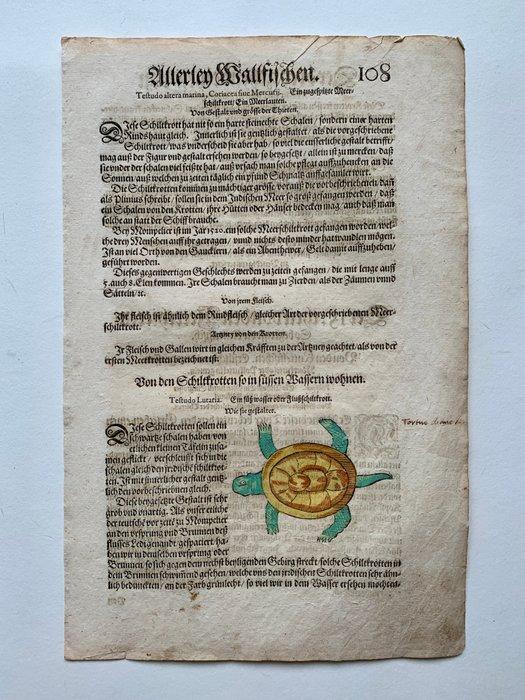 Allerley Wallfischen. 108
Testudo altera marina, Coriacea siue Mercurij. Ein zugespitzte Meer-
schiltkrott/ Ein Meerlauten.
Von Gestalt vnd grösse der Thieren.
Diese Schiltkrott hat nit so ein harte steinechte Schalen/ sondern eine harten
Rindshaut gleich. Innerlich ist sie gentzlich gestaltet/ als die vorgeschriebene
Schiltkrott/ was vnderscheid sie aber hab/ so viel die eusserliche gestalt betrifft/
mag auß der Figur vnd gestalt ersehen werden/ so beygesetzt/ allein ist zu mercken/ daß
sie vnder der schalen viel feißte hat/ auß vrsach man solche pflegt auffzuhencken an die
Sonnen/ auß welchen zu zeiten täglich ein pfund Schmaltz auffgesamlet wirt.
Die Schiltkrotten kommen zu mächtiger grösse/ vorauß die vorbeschriebenen/ dañ
als Plinius schreibt/ sollen sie in dem Indischen Meer so groß gefangen werden/ daß
ein Schalen von den Krotten/ ihre Hütten oder Häuser bedecken mag/ auch daß man
solche an statt der Schiff brauche.
Bey Mompelier ist im Jar 1520. ein solche Meerschiltkrott gefangen worden/ wel-
che drey Menschen auff ihr getragen/ vnnd nichts desto minder hat wandlen mögen.
Ist an viel Orth von den Gaucklern/ als ein Abenthewer/ Gelt damit auffzuheben/
geführt worden.
Dieses gegenwertigen Geschlechts werden zu zeiten gefangen/ die mit lenge auff
5. auch 8. Elen kommen. Ire Schalen braucht man zu Zierden/ als der Zäumen vnnd
Sätteln/ ꝛc.
Von jrem Fleisch.
Ihr fleisch ist ähnlich dem Rindfleisch/ gleicher Art der vorgeschriebenen Meer-
schiltkrott.
Artzney von den Krotten.
Ir Fleisch vnd Gallen wirt in gleichen Kräfften zu der Artzney geachtet/ als von der
ersten Meerkrotten bezeichnet ist.
Von den Schiltkrotten so in süssen Wassern wohnen.
Testudo Lutaria. Ein süß wasser oder Flußschiltkrott.
Wie sie gestaltet.
Diese Schiltkrotten sollen ein
schwartze schalen haben/ von
etlichen kleinen Täfelin zusa-
men geflickt/ verschleußt sich in die
schalen gleich den jrrdische schiltkrot-
ten. Ist mit innerlicher gestalt gentz-
lich den vorbeschriebnen gleich.
Diese beygesetzte Gestalt ist sehr
grob vnd vnartig. Als vnser etliche
der teutschē vor zeitē zu Mompelier
an den vrsprung vnd Brunnen deß
flusses Ledi gen andt/ gespatziert ha-
ben wir in demselben vrsprung oder
Brunnen/ so sich gegen dem nechst beyligenden Gebirg streckt/ solche Schiltkrotten in
dem Brunnen schwimmend gesehen/ welche vns den jrrdischen Schiltkrotten sehr ähn-
lich bedunckten/ an der Farb grünlecht/ so viel wir in dem Wasser ersehen mochten.
Tortue